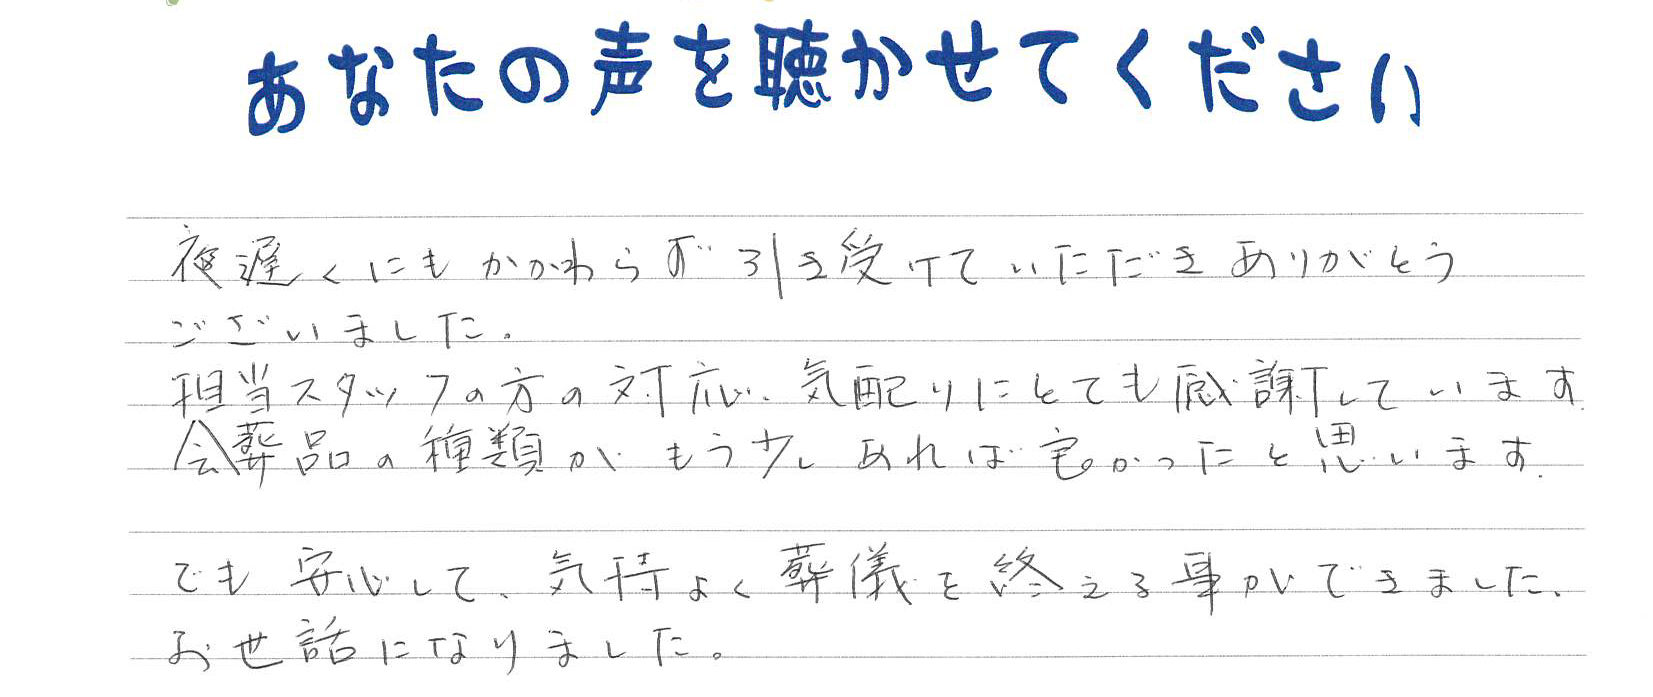 あなたの声を聴かせてください
夜遅くにもかかわらず引き受けていただきありがとう
ございました。
担当スタッフの方の対応、気配りにとても感謝しています。
会葬品の種類がもう少しあれば宜かったと思います。
でも安心して、気持よく葬儀を終える事ができました、
お世話になりました。